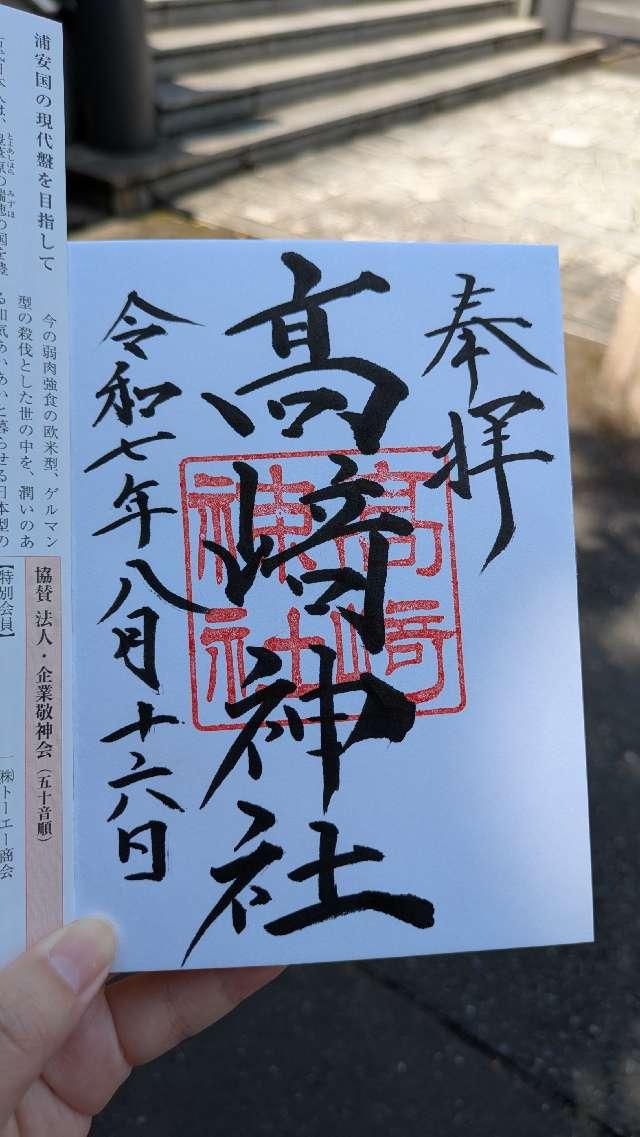 奉拝
高崎神社
令和七年八月十六日
高崎
神社
浦安国の現代盤を目指して
今の弱肉強食の欧米型、ゲルマン
型の殺伐とした世の中を、潤いのあ
る和気あいあいと暮らせる日本型の
協賛 法人・企業敬神会(五十音順)
【特別会員】
㈱トーエー商会